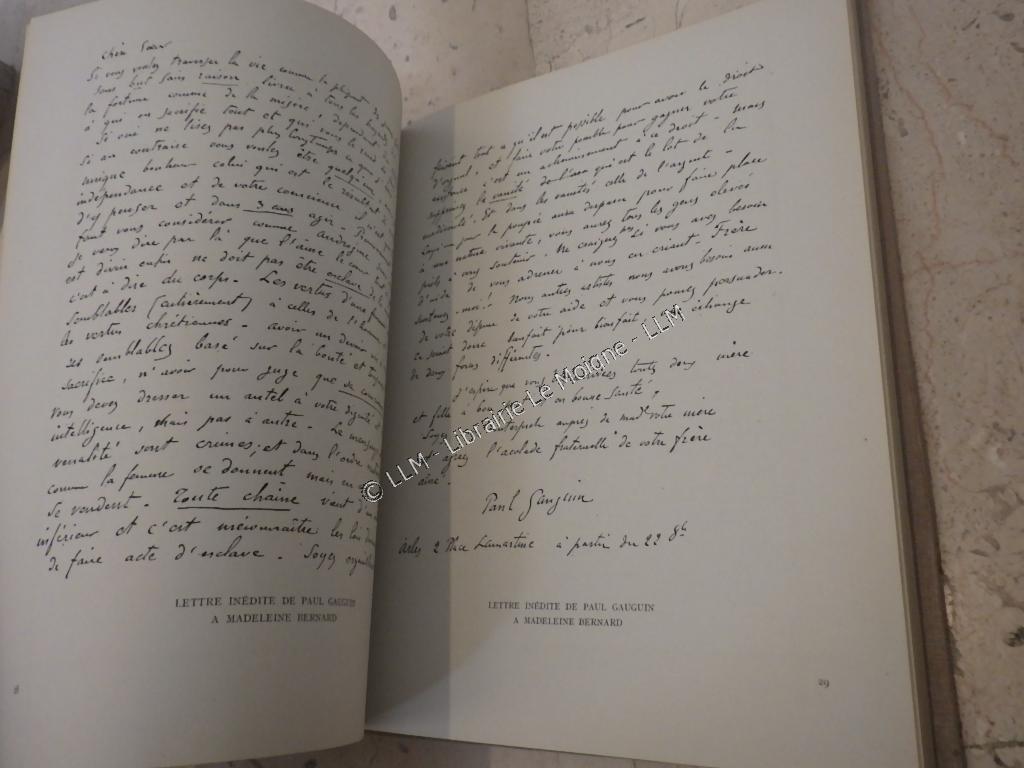 Chère Sœur
Si vous voulez traverser la vie comme la plupart
sans but sans raison, livrée à tous les
la fortune comme de la misère, dépendant
à qui on sacrifie tout et qui vous le rend
Si oui ne lisez pas plus longtemps
Si au contraire vous voulez être quelqu'un
unique bonheur celui qui est le résultat
indépendance et de votre conscience
d'y penser et dans 3 ans agir.
faut vous considérer comme androgyne
Je veux dire par là que l'âme le cœur
est divin enfin ne doit pas être esclave de la
c'est à dire du corps. Les vertus d'une femme
semblables (entièrement) à celles de l'homme
les vertus chrétiennes - avoir un devoir
ses semblables basé sur la bonté et toujours
sacrifice, n'avoir pour juge que sa
Vous devez dresser un autel à votre dignité
intelligence, mais pas à autre. Le mensonge
vénalité sont crimes; et dans l'ordre
comme la femme se donnent mais
se vendent. Toute chaine vient d'un
inférieur et c'est méconnaitre les lois
de faire acte d'esclave. Soyez
LETTRE INÉDITE DE PAUL GAUGUIN
A MADELEINE BERNARD
8
faisant tout ce qu'il est possible pour avoir le droit
d'orgueil, et faire votre possible pour gagner votre
c'est un acheminement à ce droit - Mais
supprimez la vanité qui est le lot de la
médiocrité. Et dans les vanités celle de l'argent -
aura disparu pour faire place
à une nature vivante, vous aurez tous les gens élevés
prêts à vous soutenir. Ne craignez Si vous avez besoin
d'aide de vous adresser à nous en criant - Frère
soutenez-moi! Nous autres artistes nous avons besoin aussi
de votre défense de votre aide et vous pouvez persuader.
ce serait donc bienfait pour bienfait, échange
de deux forces différentes.
J'espère que vous arrivées toutes deux mère
et fille à bon en bonne Santé,
auprès de mad votre mère
l'accolade fraternelle de votre frère
ainé.
Paul Gauguin
Arles 2 Place Lamartine à partir du 22 8b
LETTRE INÉDITE DE PAUL GAUGUIN
A MADELEINE BERNARD
29
© LLM - Librairie Le Moigne - LLM